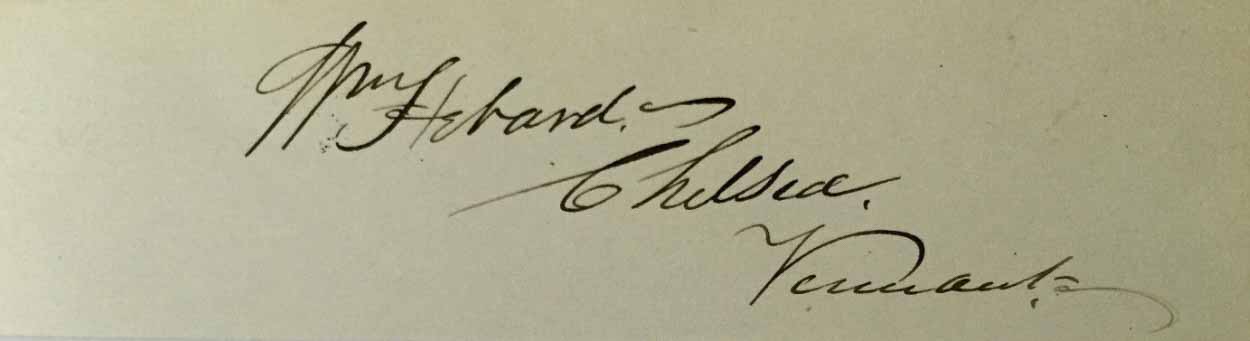 Wm Hebard.
Chelsea.
Vermont.